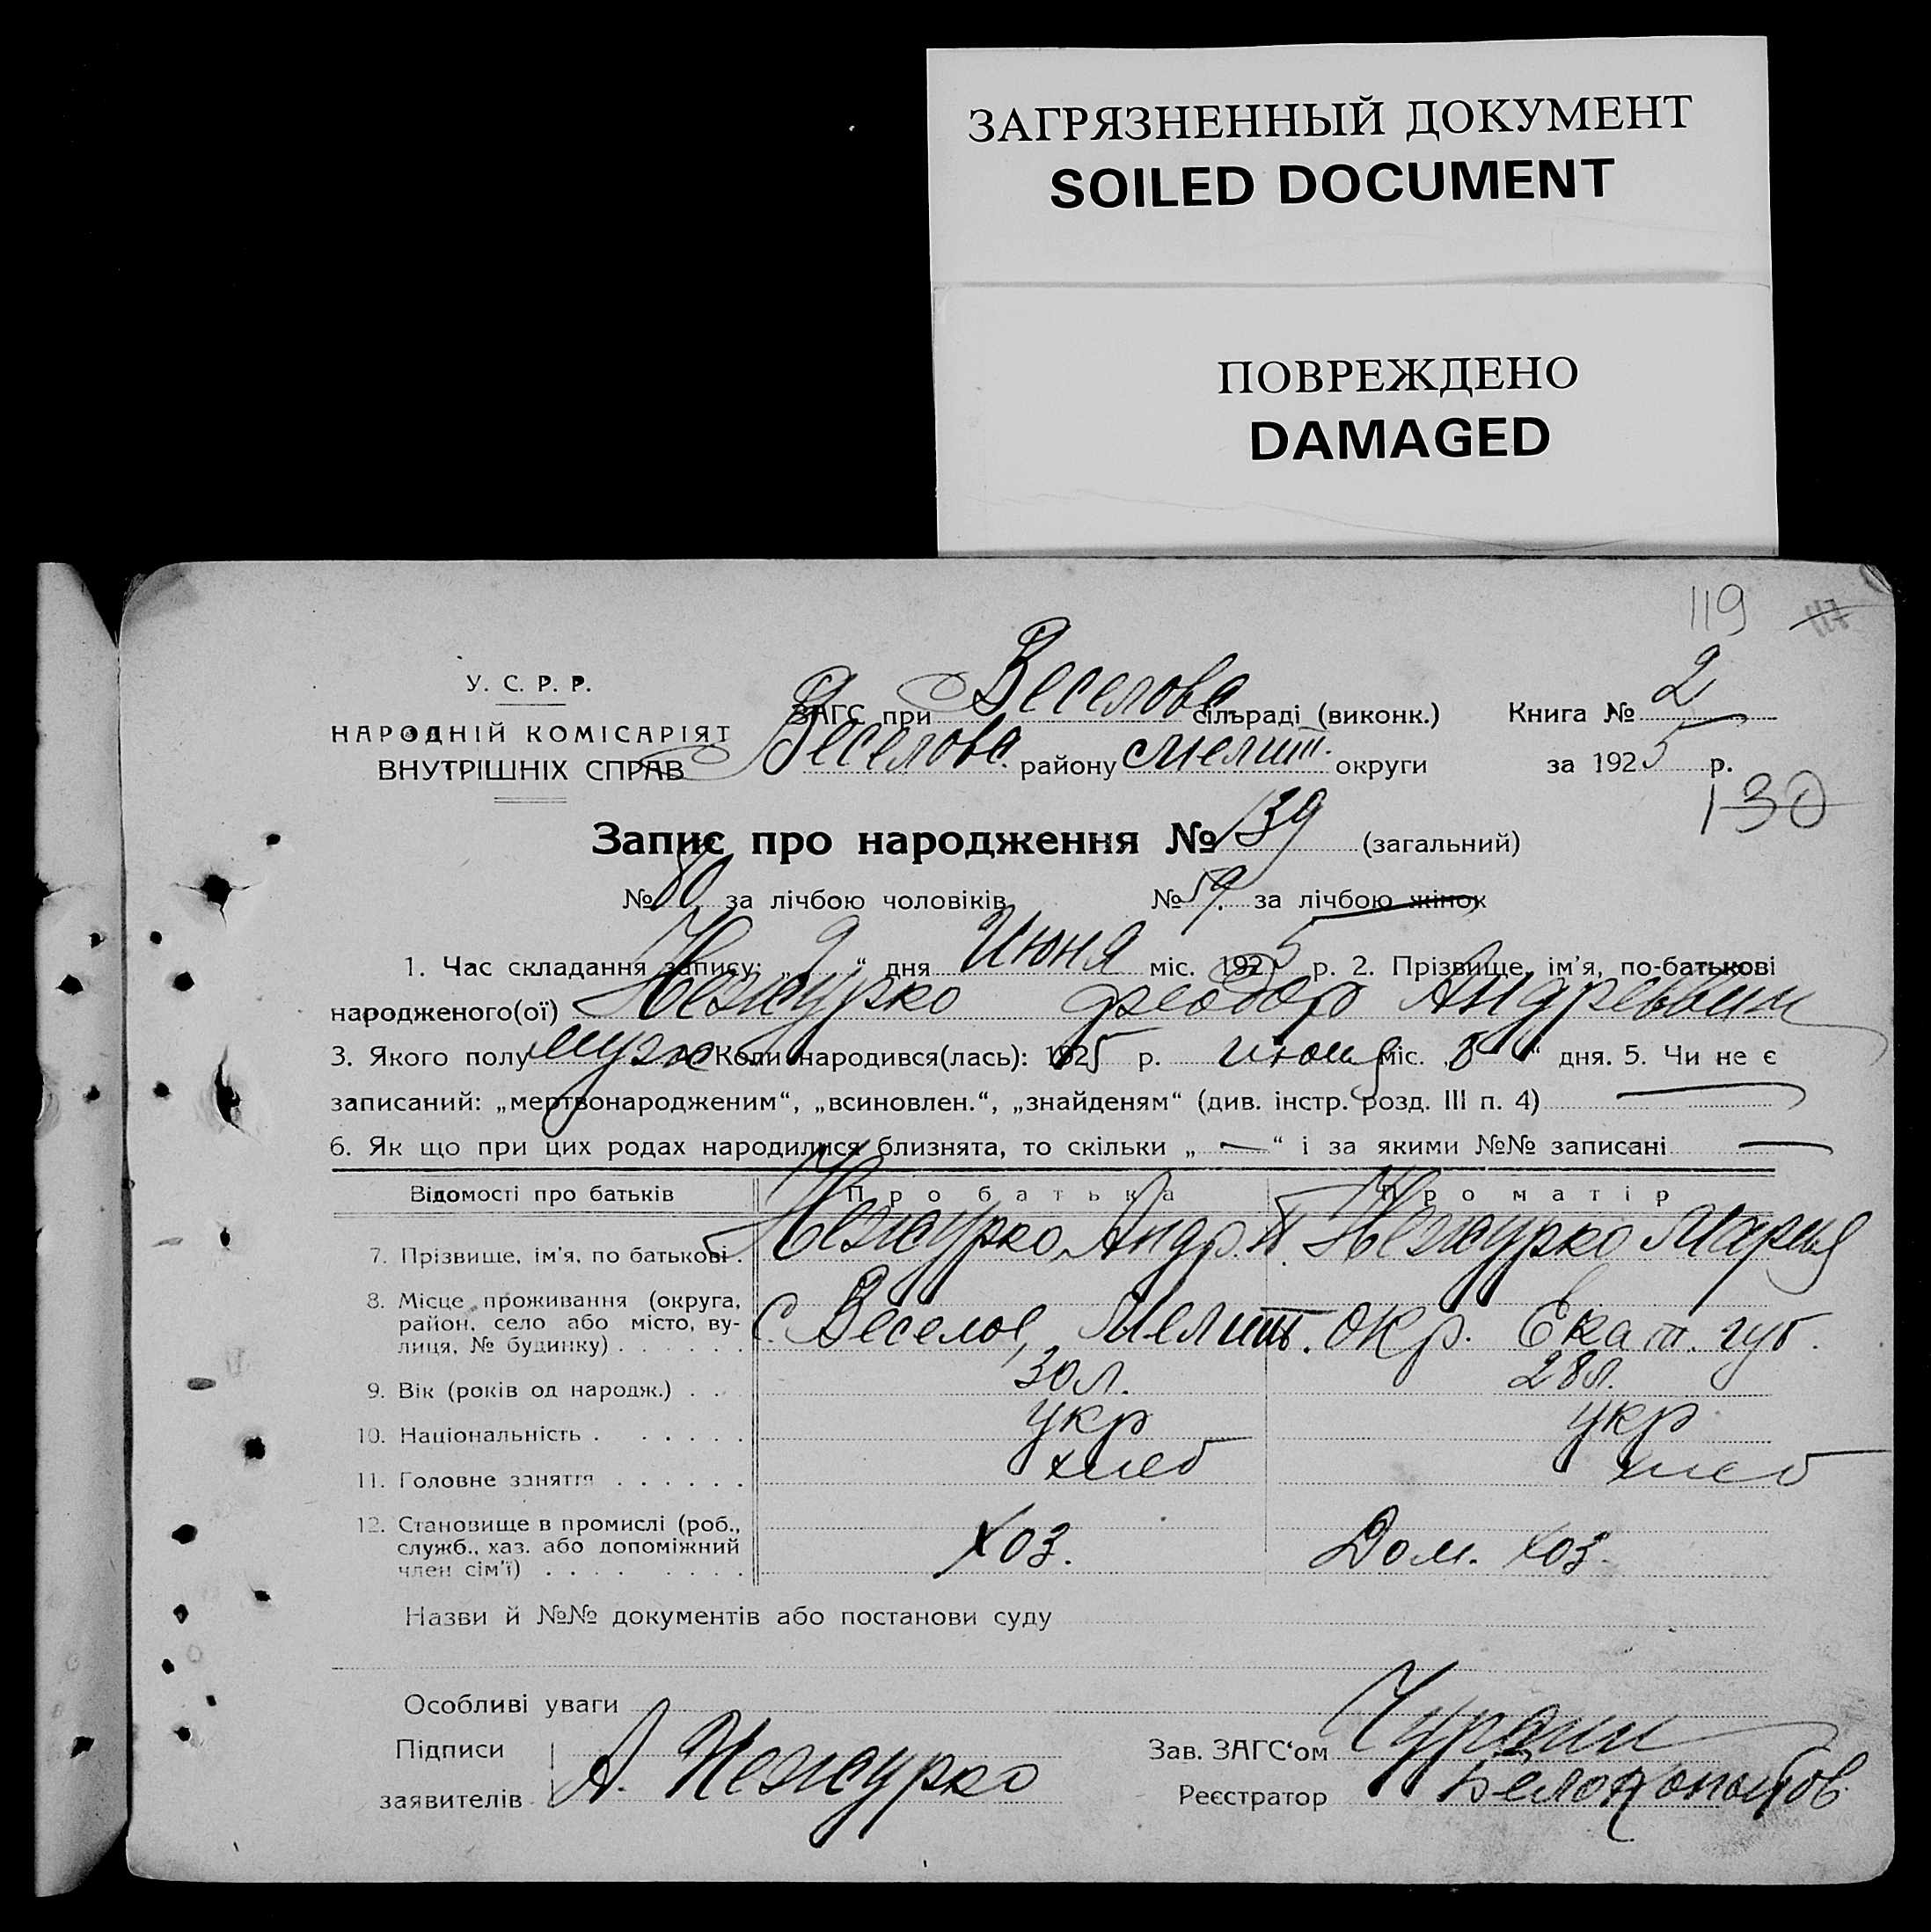 ЗАГРЯЗНЕННЫЙ ДОКУМЕНТ
SOILED DOCUMENT
ПОВРЕЖДЕНО
DAMAGED
119 117
У. С. Р. Р.
НАРОДНІЙ КОМІСАРІЯТ
ВНУТРІШНІХ СПРАВ
ЗАГС при Веселовс. сільраді (виконк.) Книга № 2
Веселовс. району Мелит. округи за 1925 р.
130
Запис про народження № 139 (загальний)
№ 80 за лічбою чоловіків № 59. за лічбою жінок
1. Час складання запису: „ 9 “ дня Июня міс. 1925 р. 2. Прізвище, ім’я, по-батькові
народженого(ої) Нежурко Феодор Андреевич
3. Якого полу муж Коли народився(лась): 1925 р. июня міс. „ “ дня. 5. Чи не є
записаний: „мертвонародженим“, „всиновлен.“, „знайденям“ (див. інстр. розд. III п. 4) —
6. Як що при цих родах народилися близнята, то скільки „ — “ і за якими №№ записані —
Відомості про батьків Про батька Про матір
7. Прізвище, ім’я, по батькові . Нежурко Андр. П. Нежурко Мария
8. Місце проживання (округа, район, село або місто, ву-
лиця, № будинку) . . . . . . С. Веселое, Мелит. окр. Екат. губ.
9. Вік (років од народж.) . . 30 л. 28 л.
10. Національність . . . . . . укр укр
11. Головне заняття . . . . . . хлеб хлеб
12. Становище в промислі (роб.,
служб., хаз. або допоміжний
член сім’ї) . . . . . . . . хоз. Дом. хоз.
Назви й №№ документів або постанови суду
Особливі уваги
Підписи
заявителів А. Нежурко
Зав. ЗАГС‘ом
Реєстратор